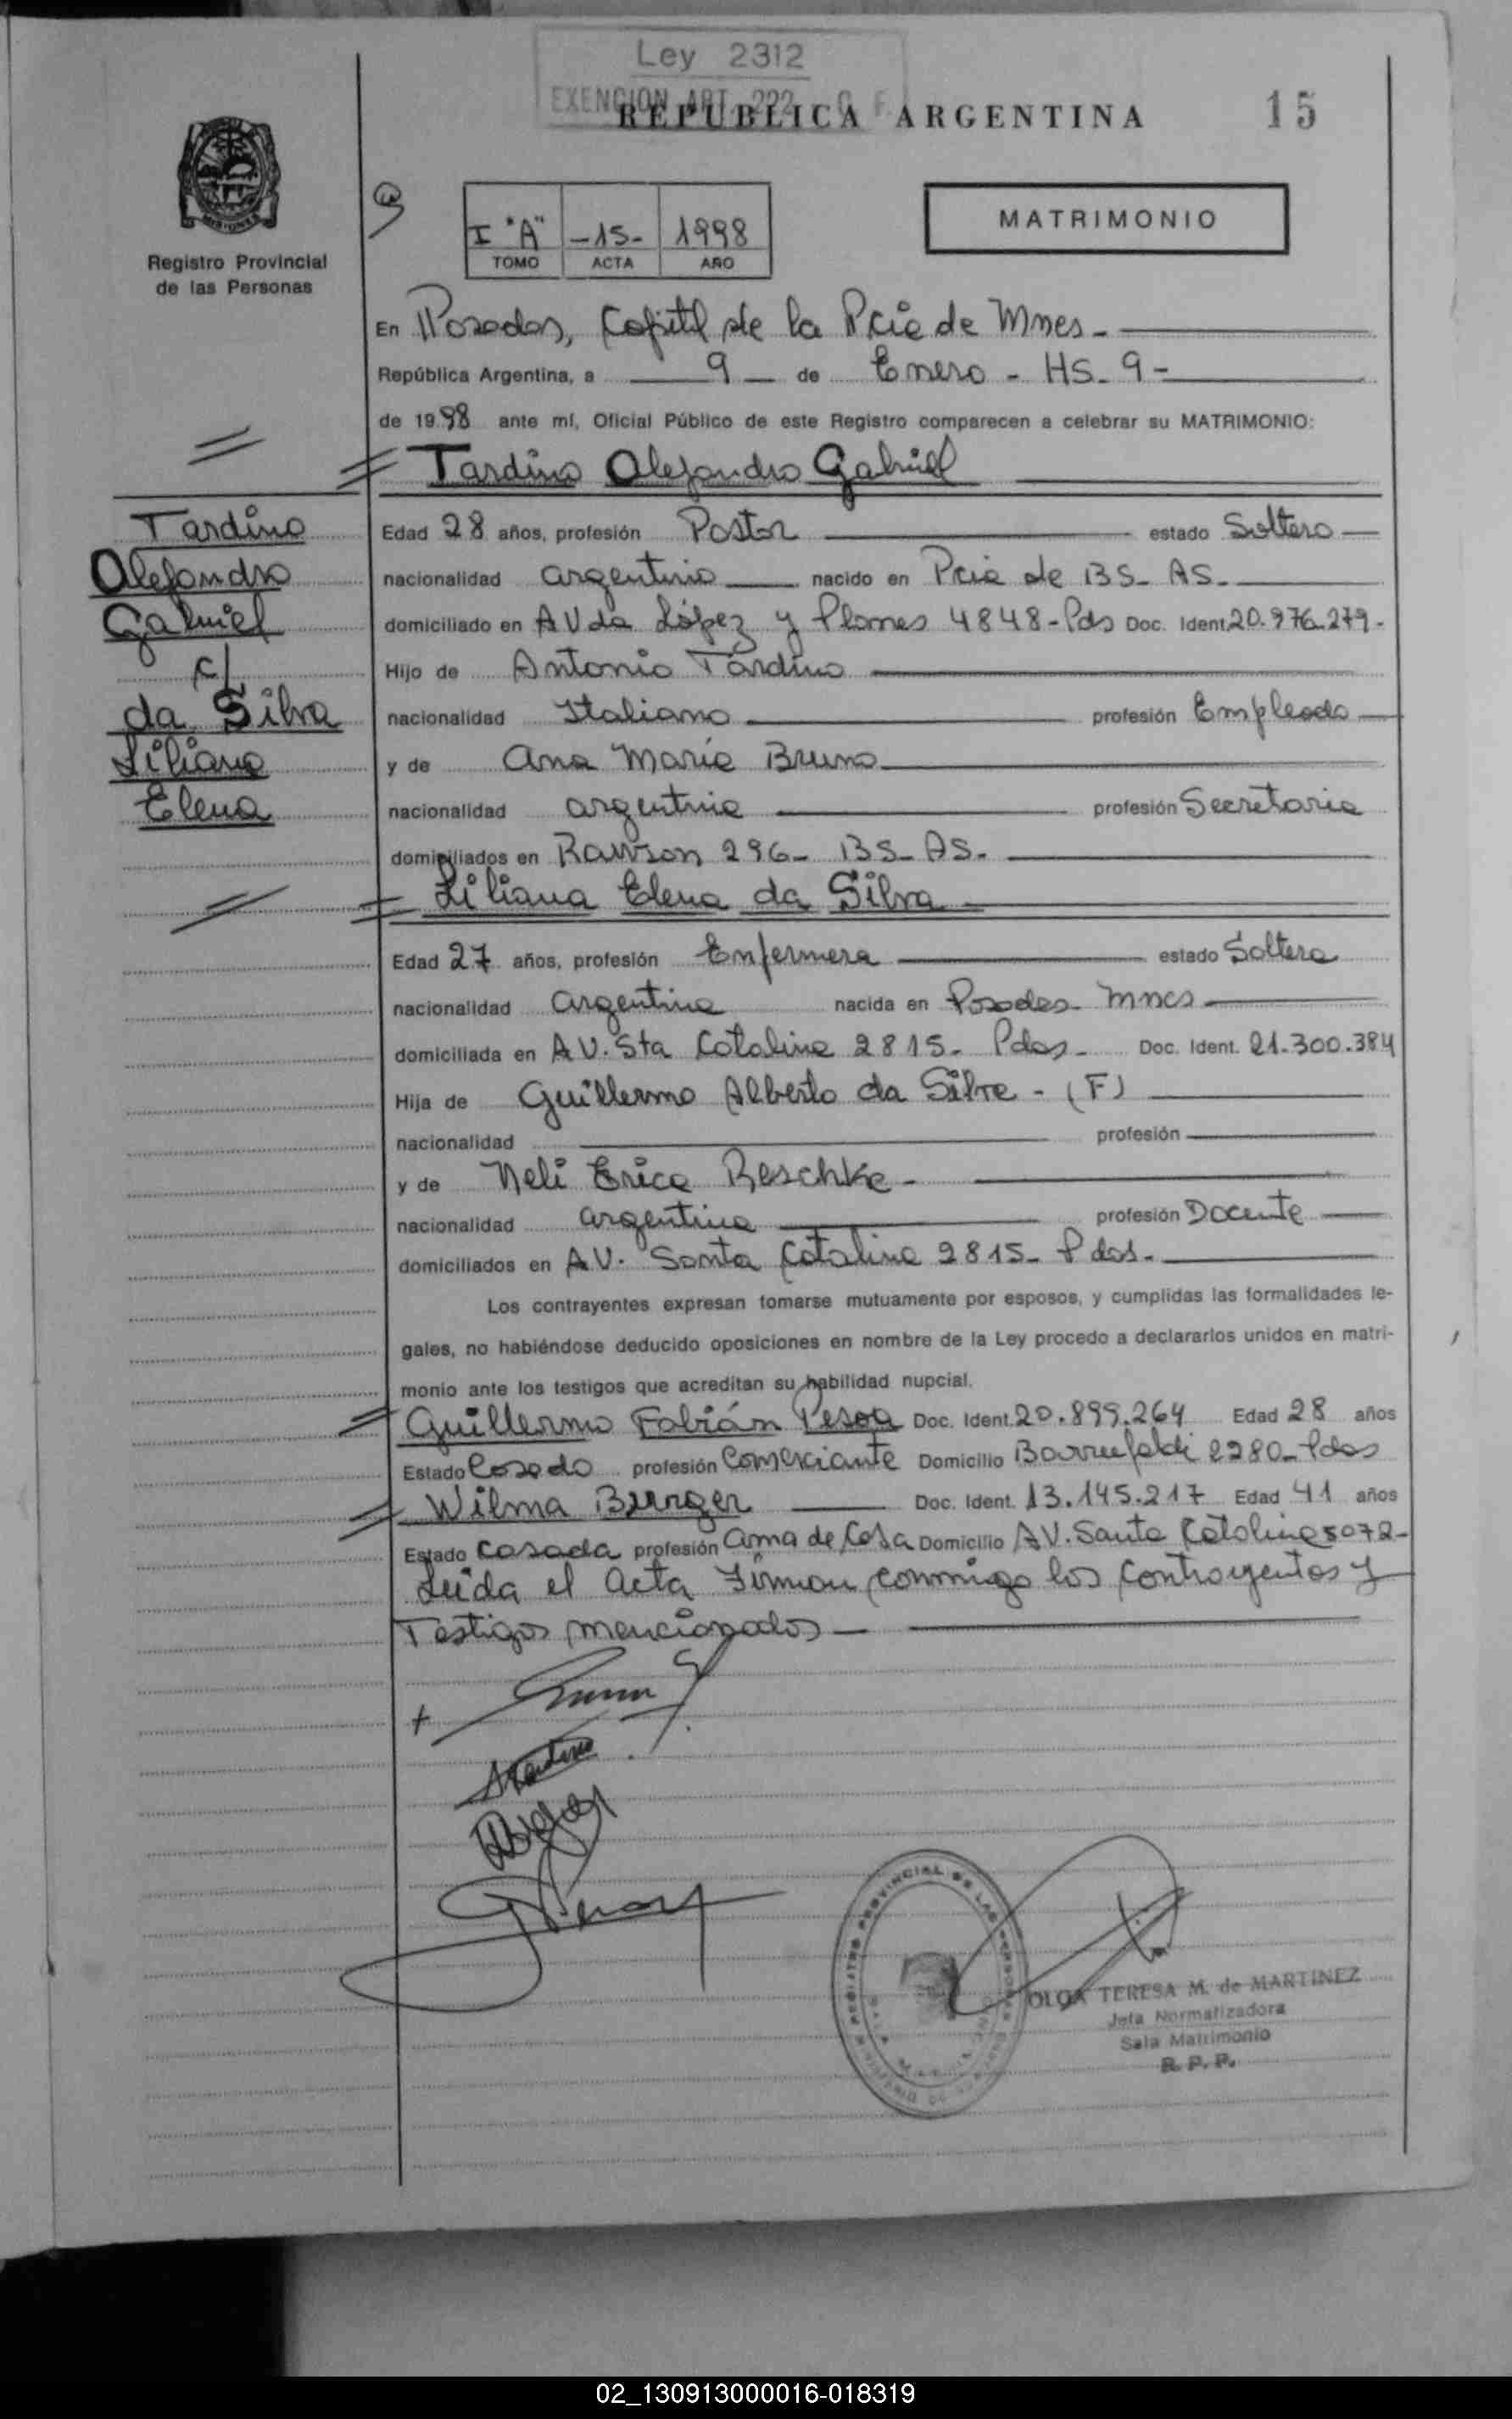 Ley 2312
EXENCION ART. 222 C F
REPUBLICA ARGENTINA
15
MISIONES
Registro Provincial
de las Personas
I "A" -15- 1998
TOMO ACTA AÑO
MATRIMONIO
En Posadas, Capital de la Pcia de Mnes-
República Argentina, a 9 de Enero - HS. 9-
de 1998 ante mí, Oficial Público de este Registro comparecen a celebrar su MATRIMONIO:
Tardino Alejandro Gabriel
Tardino
Alejandro
Gabriel
c/
da Silva
Liliana
Elena
Edad 28 años, profesión Pastor estado Soltero
nacionalidad argentino nacido en Pcia de BS- AS-
domiciliado en AVda López y Planes 4848-Pds Doc. Ident. 20.976.279-
Hijo de Antonio Tardino
nacionalidad Italiano profesión Empleado
y de Ana María Bruno
nacionalidad argentina profesión Secretaria
domiciliados en Rawson 296- BS- AS-
Liliana Elena da Silva
Edad 27 años, profesión Enfermera estado Soltera
nacionalidad argentina nacida en Posadas- Mnes
domiciliada en AV. Sta Catalina 2815- Pdas- Doc. Ident. 21.300.384
Hija de Guillermo Alberto da Silva - (F)
nacionalidad profesión
y de Neli Erica Reschke-
nacionalidad argentina profesión Docente
domiciliados en AV. Santa Catalina 2815- Pdas-
Los contrayentes expresan tomarse mutuamente por esposos, y cumplidas las formalidades le-
gales, no habiéndose deducido oposiciones en nombre de la Ley procedo a declararlos unidos en matri-
monio ante los testigos que acreditan su habilidad nupcial.
Guillermo Fabián Pesoa Doc. Ident. 20.899.264 Edad 28 años
Estado Casado profesión Comerciante Domicilio 2280- Pdas
Wilma Doc. Ident. 13.145.217 Edad 41 años
Estado Casada profesión Ama de Casa Domicilio AV. Santa Catalina 5072-
Leída el Acta Firman conmigo los contrayentes y
Testigos mencionados-
OLGA TERESA M. de MARTINEZ
Jefa Normatizadora
Sala Matrimonio
R. P. P.
02_130913000016-018319